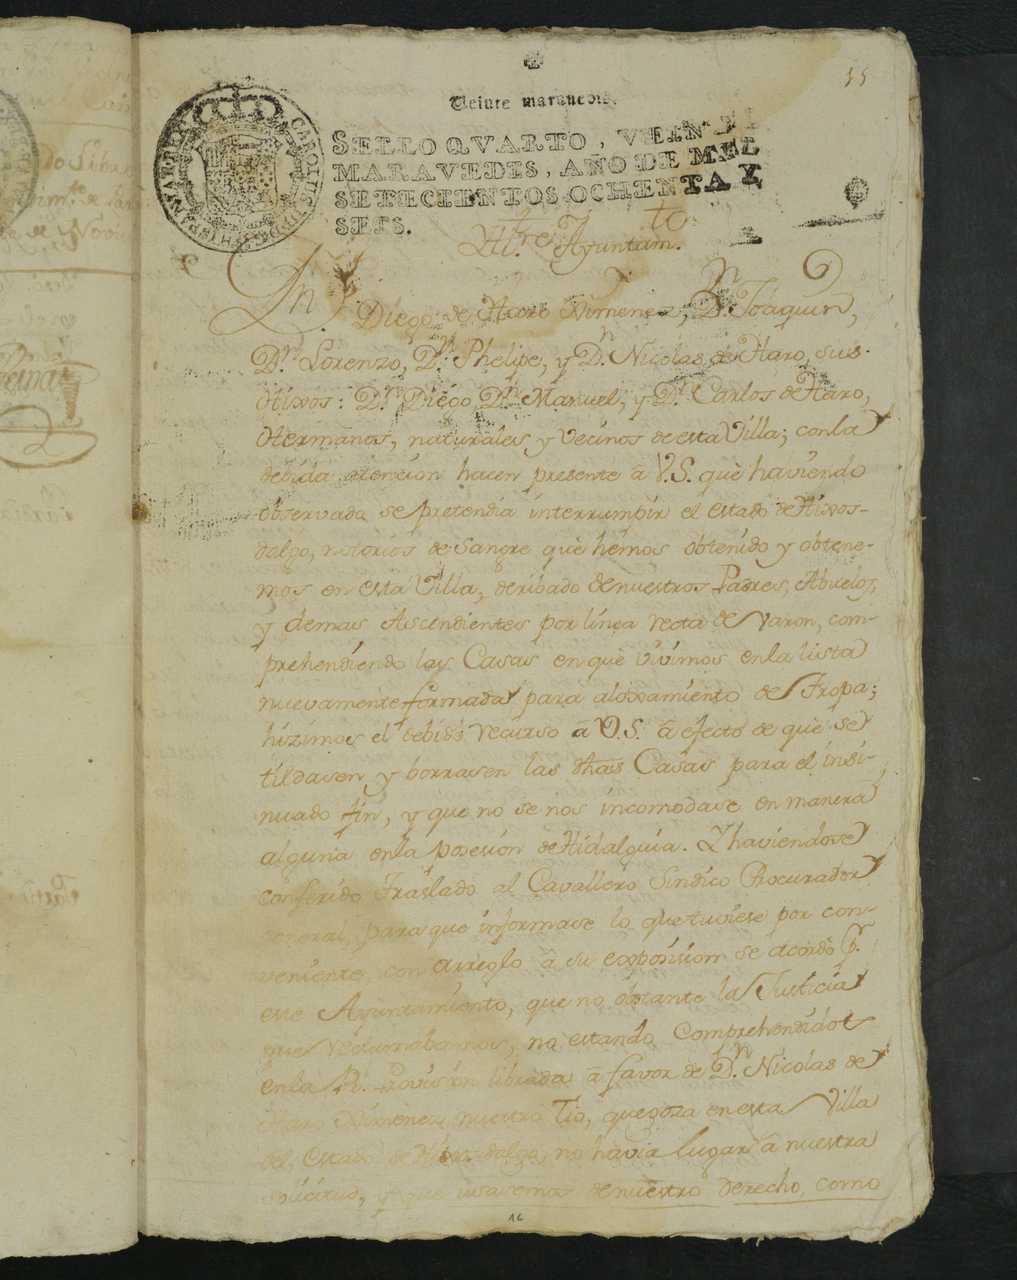 55
Veinte marauedis.
SELLO QVARTO, VEINTE
MARAVEDIS, AÑO DE MIL
SETECIENTOS OCHENTA Y
SEIS.
CAROLUS III D G HISPANIAR REX
Yltre. Ayuntamto.
Dn. Diego de Haro Ximenez, Dn. Joaquin,
Dn. Lorenzo, Dn. Phelipe, y Dn. Nicolas de Haro, sus
Hixos: Dn. Diego, Dn. Manuel, y Dn. Carlos de Haro,
Hermanos, naturales y vecinos de esta Villa; con la
debida atencion hacen presente â V.S. què haviendo
observado se pretendia interrumpir el estado de Hixos-
dalgo, notorios de Sangre què hemos obtenido y obtene-
mos en esta Villa, deribado de nuestros Padres, Abuelos,
y demas Ascendientes por linea recta de varon, com-
prehendiendo las Casas en què vivimos en la lista
nuevamente formada para aloxamiento de Tropa;
hizimos el debido recurso â V.S. â efecto de què se
tildasen y borrasen las dhas Casas para el insi-
nuado fin, y que no se nos incomodase en manera
alguna en la posesion de Hidalguia. Y haviendose
conferido Traslado al Cavallero Sindico Procurador
general, para que informase lo que tuviese por con-
veniente, con arreglo â su exposicion se acordó pr.
este Ayuntamiento, que no obstante la Justicia
que reclamabamos, no estando Comprehendidos
en la Rl. Provision librada â favor de Dn. Nicolas de
Haro Ximenez nuestro Tio, que goza en esta Villa
del Estado de Hixos-dalgo, no havia lugar â nuestra
solicitud, y que usasemos de nuestro derecho, como